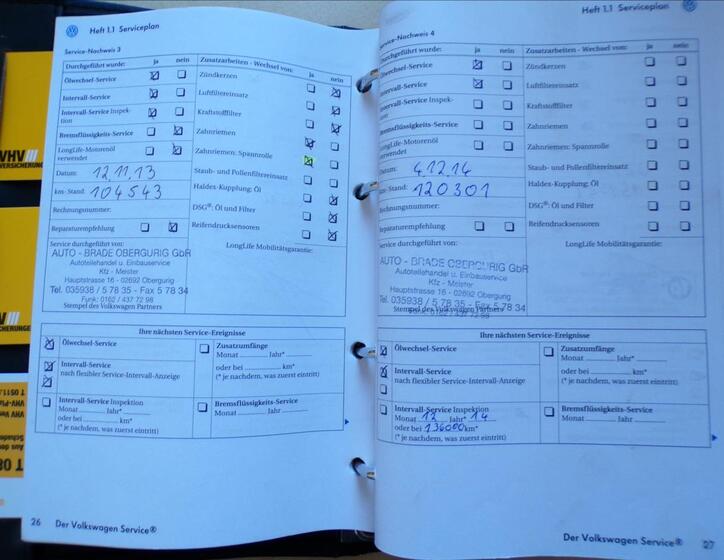 Heft 1.1 Serviceplan
Service-Nachweis 3
Durchgeführt wurde: ja nein
Ölwechsel-Service
Intervall-Service
Intervall-Service Inspek-
tion
Bremsflüssigkeits-Service
LongLife-Motorenöl
verwendet
Datum: 12.11.13
km-Stand: 104543
Rechnungsnummer:
Reparaturempfehlung
Service durchgeführt von:
AUTO - BRADE OBERGURIG GbR
Autoteilehandel u. Einbauservice
Kfz - Meister
Hauptstrasse 16 - 02692 Obergurig
Tel. 035938 / 5 78 35 - Fax 5 78 34
Funk: 0162 / 437 72 98
Stempel des Volkswagen Partners
Zusatzarbeiten - Wechsel von: ja nein
Zündkerzen
Luftfiltereinsatz
Kraftstofffilter
Zahnriemen
Zahnriemen: Spannrolle
Staub- und Pollenfiltereinsatz
Haldex-Kupplung: Öl
DSG®: Öl und Filter
Reifendrucksensoren
LongLife Mobilitätsgarantie:
Ihre nächsten Service-Ereignisse
Ölwechsel-Service
Intervall-Service
nach flexibler Service-Intervall-Anzeige
Intervall-Service Inspektion
Monat Jahr*
oder bei km*
(* je nachdem, was zuerst eintritt)
Zusatzumfänge
Monat Jahr*
oder bei km*
(* je nachdem, was zuerst eintritt)
Bremsflüssigkeits-Service
Monat Jahr
26 Der Volkswagen Service®
Heft 1.1 Serviceplan
Service-Nachweis 4
Durchgeführt wurde: ja nein
Ölwechsel-Service
Intervall-Service
Intervall-Service Inspek-
tion
Bremsflüssigkeits-Service
LongLife-Motorenöl
verwendet
Datum: 4.12.14
km-Stand: 120301
Rechnungsnummer:
Reparaturempfehlung
Service durchgeführt von:
AUTO - BRADE OBERGURIG GbR
Autoteilehandel u. Einbauservice
Kfz - Meister
Hauptstrasse 16 - 02692 Obergurig
Tel. 035938 / 5 78 35 - Fax 5 78 34
Funk: 0162 / 437 72 98
Stempel des Volkswagen Partners
Zusatzarbeiten - Wechsel von: ja nein
Zündkerzen
Luftfiltereinsatz
Kraftstofffilter
Zahnriemen
Zahnriemen: Spannrolle
Staub- und Pollenfiltereinsatz
Haldex-Kupplung: Öl
DSG®: Öl und Filter
Reifendrucksensoren
LongLife Mobilitätsgarantie:
Ihre nächsten Service-Ereignisse
Ölwechsel-Service
Intervall-Service
nach flexibler Service-Intervall-Anzeige
Intervall-Service Inspektion
Monat 12 Jahr* 14
oder bei 136000 km*
(* je nachdem, was zuerst eintritt)
Zusatzumfänge
Monat Jahr*
oder bei km*
(* je nachdem, was zuerst eintritt)
Bremsflüssigkeits-Service
Monat Jahr
Der Volkswagen Service® 27
VHV
VERSICHERUNGEN